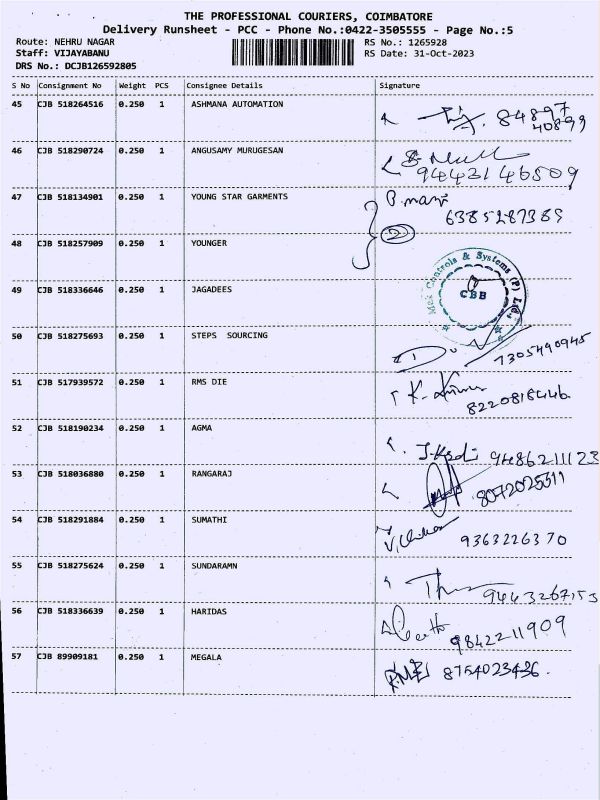 THE PROFESSIONAL COURIERS, COIMBATORE
Delivery Runsheet - PCC - Phone No.:0422-3505555 - Page No.:5
Route: NEHRU NAGAR RS No.: 1265928
Staff: VIJAYABANU RS Date: 31-Oct-2023
DRS No.: DCJB126592805
S No Consignment No Weight PCS Consignee Details Signature
45 CJB 518264516 0.250 1 ASHMANA AUTOMATION 84897
40899
46 CJB 518290724 0.250 1 ANGUSAMY MURUGESAN
9443146509
47 CJB 518134901 0.250 1 YOUNG STAR GARMENTS B.mani
6385287389
48 CJB 518257909 0.250 1 YOUNGER 2
49 CJB 518336646 0.250 1 JAGADEES Controls & Systems (P) Ltd.
CBB
50 CJB 518275693 0.250 1 STEPS SOURCING
7305490945
51 CJB 517939572 0.250 1 RMS DIE
8220818446
52 CJB 518190234 0.250 1 AGMA 9486211123
53 CJB 518036880 0.250 1 RANGARAJ 8072025311
54 CJB 518291884 0.250 1 SUMATHI 9363226370
55 CJB 518275624 0.250 1 SUNDARAMN 9443267153
56 CJB 518336639 0.250 1 HARIDAS 9842211909
57 CJB 89909181 0.250 1 MEGALA 8754023436.